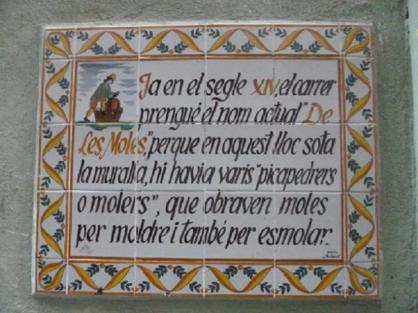 Ja en el segle XIV, el carrer
prengué el nom actual "De
Les Moles", perque en aquest lloc sota
la muralla, hi havia varis "picapedrers
o molers", que obraven moles
per moldre i també per esmolar.